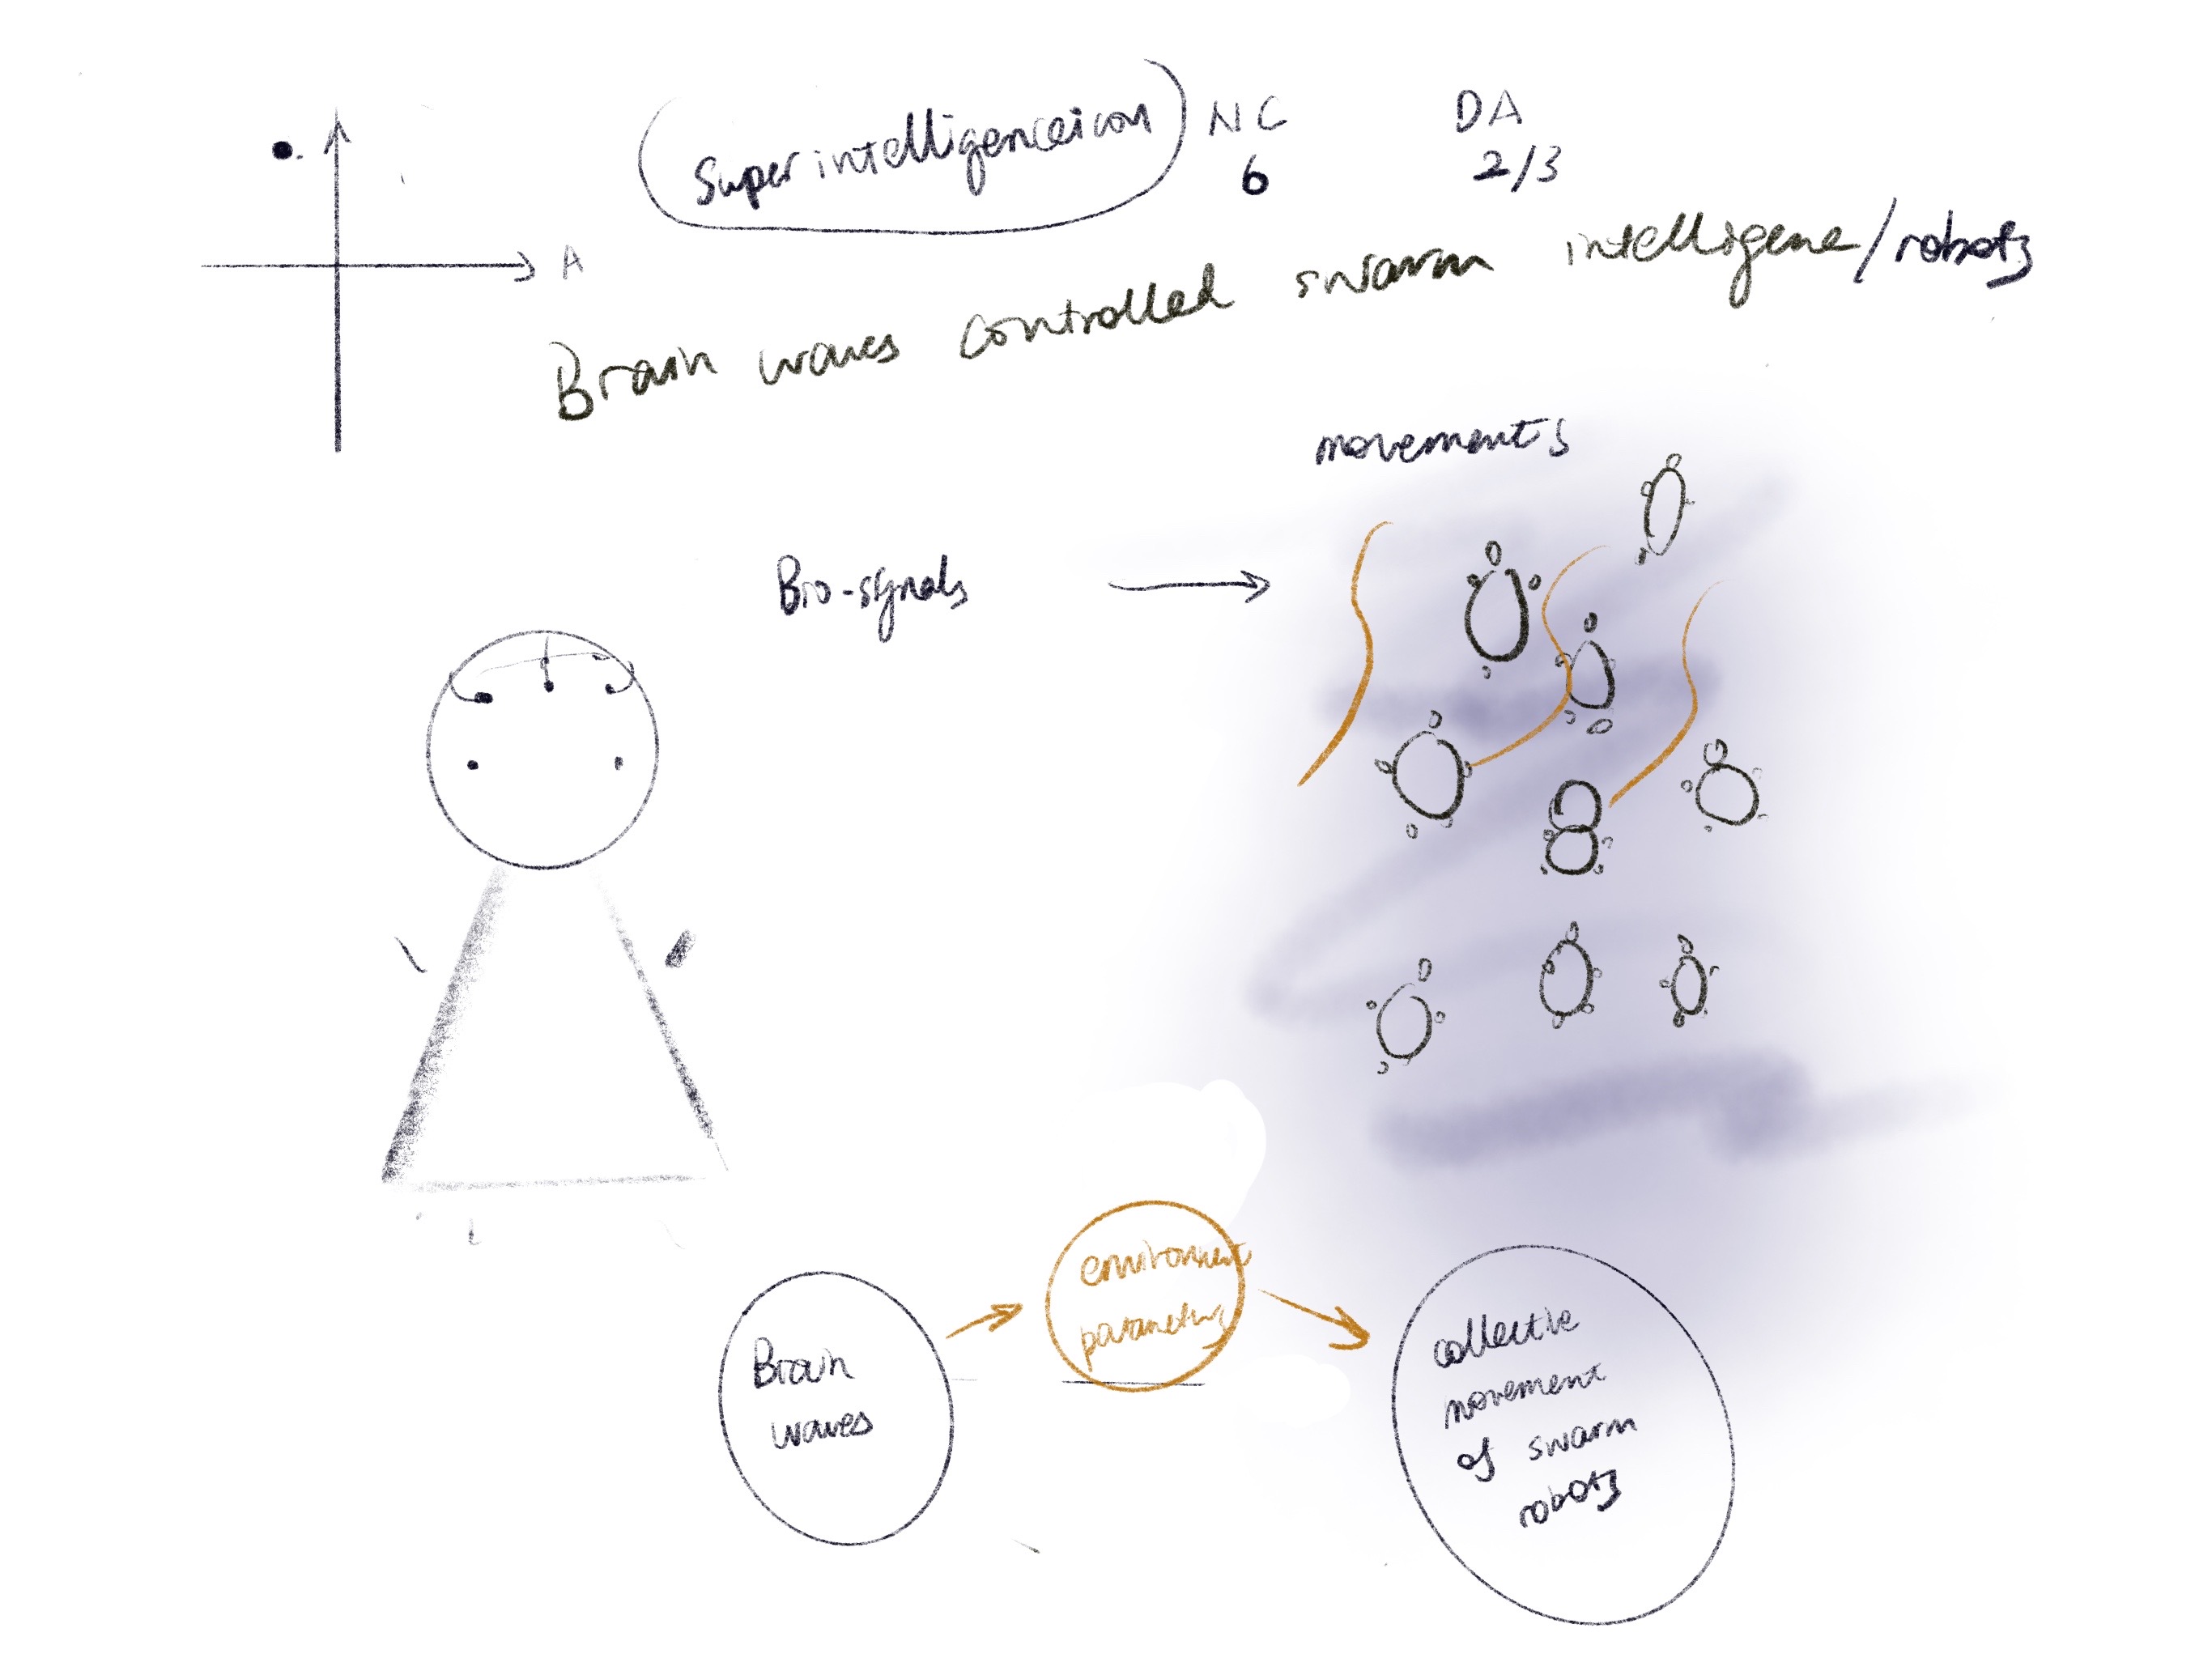 Superintelligenceion NC DA
6 2/3
A
Brain waves controlled swarm intelligene/robots
movements
Bio-signals
environment
parameters
Brain
waves
collective
movement
of swarm
robots